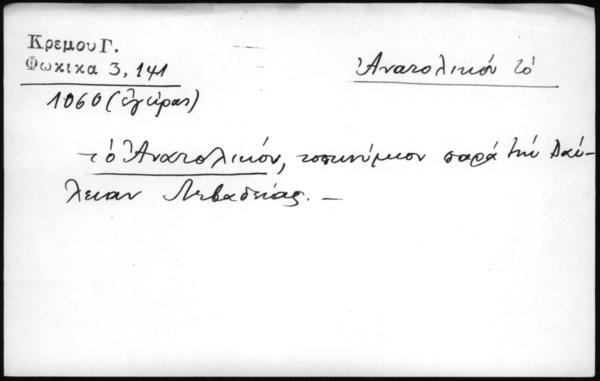 Κρεμου Γ.
Φωκικα 3, 141
Ἀνατολικόν τό
1060 (ἐγγύρας)
τό Ἀνατολικόν, τοπωνύμιον παρά τήν Δαύ-
λειαν Λεβαδείας. —